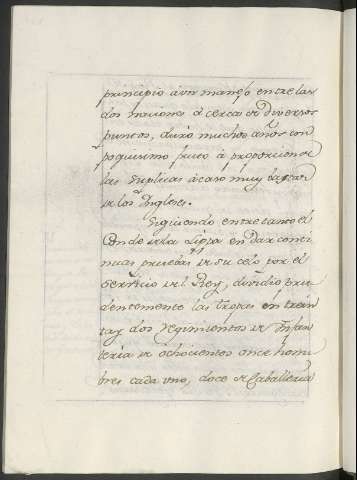 principio á un manejo entre las
dos naciones á cerca de diversos
puntos, duró muchos años con
poquisimo fruto á proporcion de
las suplicas acaso muy bajas
de los Ingleses.
Siguiendo entretanto el
Conde de la Lippa en dar conti
nuas pruebas de su celo por el
Servicio del Rey, dividio pru
dentemente las tropas en trein
ta y dos regimientos de Infan
teria de ochocientos once hom
bres cada uno, doce de Caballeria